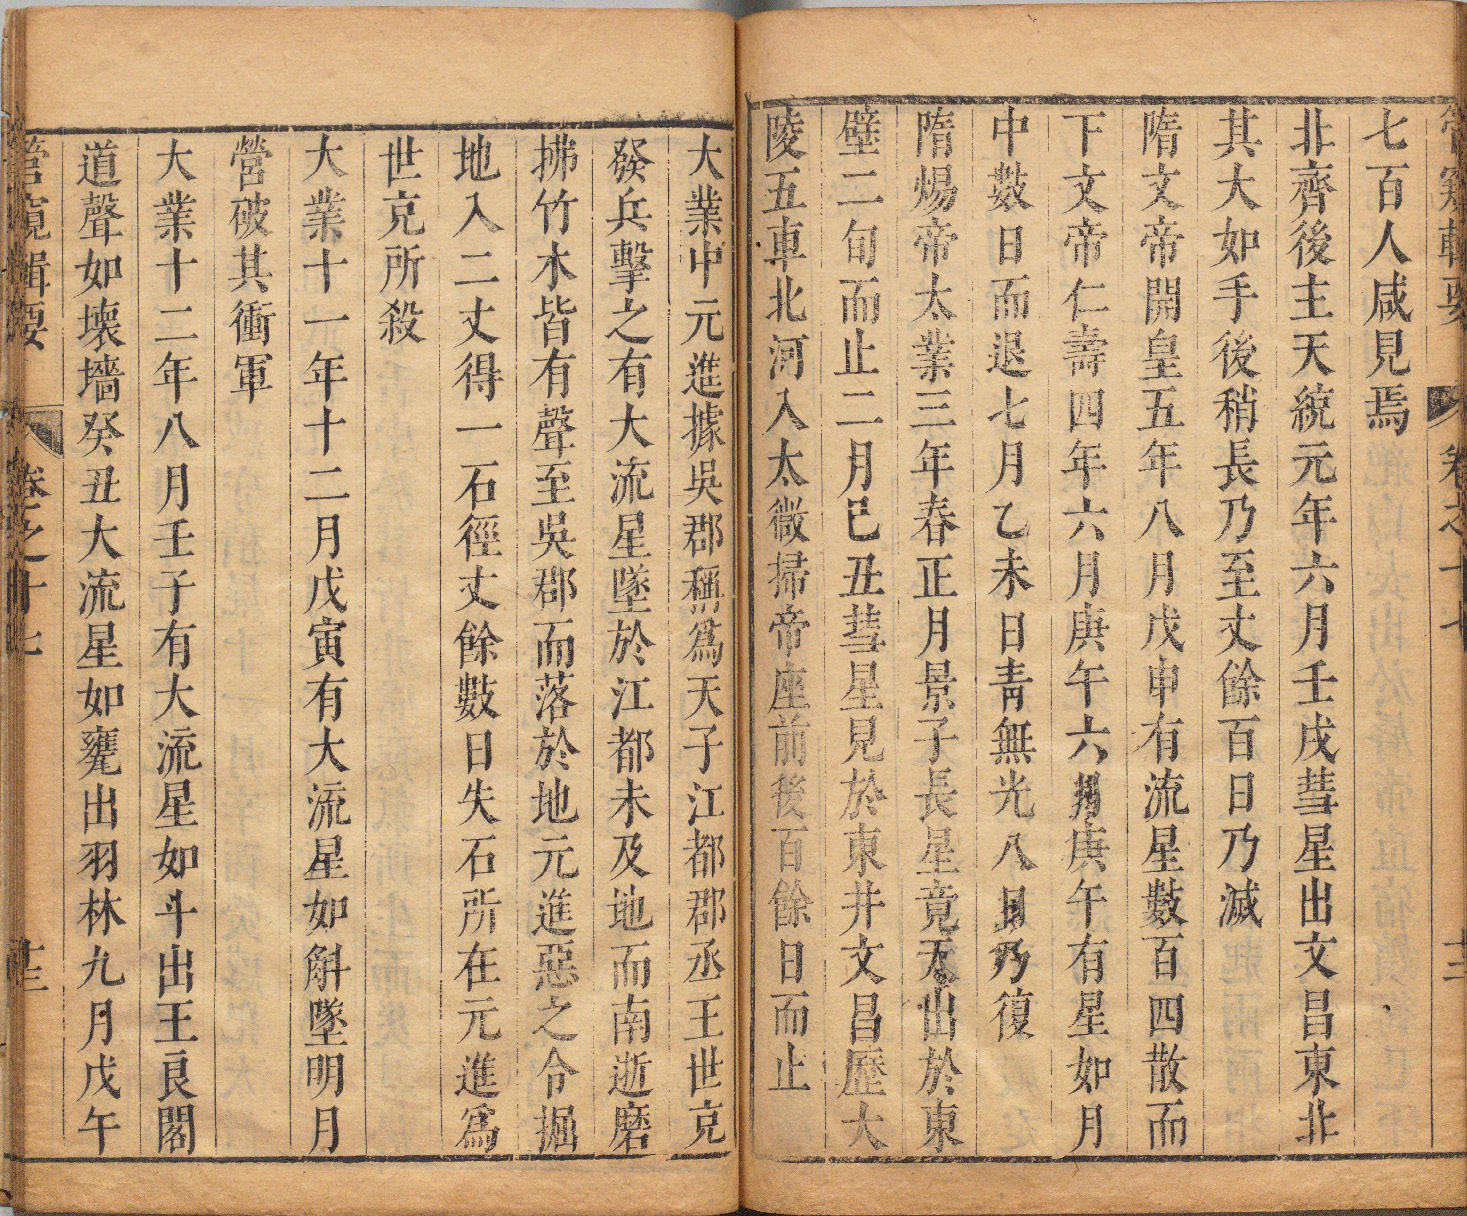 管窺輯要 卷之十七 十三
七百人咸見焉
北齊後主天統元年六月壬戌彗星出文昌東北
其大如手後稍長乃至丈餘百日乃滅
隋文帝開皇五年八月戊申有流星數百四散而
下文帝仁壽四年六月庚午六月庚午有星如月
中數日而退七月乙未日青無光八日乃復
隋煬帝太業三年春正月景子長星竟天出於東
壁二旬而止二月巳丑彗星見於東井文昌歷大
陵五車北河入太微掃帝座前後百餘日而止
大業中元進據吳郡稱爲天子江都郡丞王世充
發兵擊之有大流星墜於江都未及地而南逝磨
拂竹木皆有聲至吳郡而落於地元進惡之令掘
地入二丈得一石徑丈餘數日失石所在元進爲
世充所殺
大業十一年十二月戊寅有大流星如斛墜明月
營破其衝軍
大業十二年八月壬子有大流星如斗出王良閣
道聲如壞墻癸丑大流星如甕出羽林九月戊午
管窺輯要 卷之十七 十三